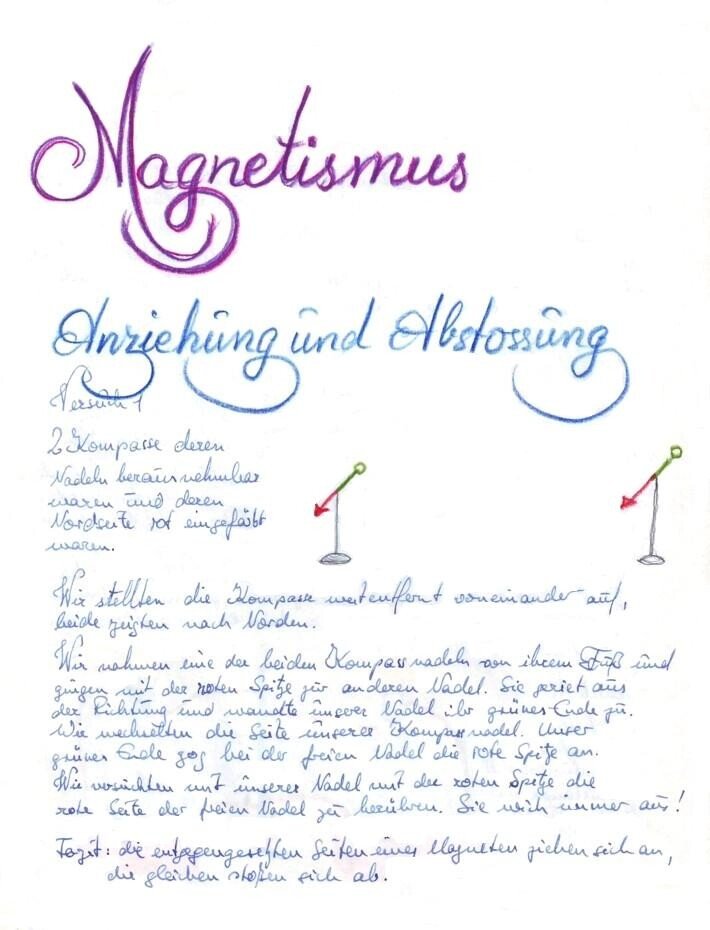 Magnetismus
Anziehung und Abstossung
Versuch 1
2 Kompasse deren
Nadeln herausnehmbar
waren und deren
Nordseite rot eingefärbt
waren.
Wir stellten die Kompasse weit entfernt voneinander auf,
beide zeigten nach Norden.
Wir nahmen eine der beiden Kompassnadeln von ihrem Fuß und
gingen mit der roten Spitze zur anderen Nadel. Sie geriet aus
der Richtung und wandte unserer Nadel ihr grünes Ende zu.
Wir wechselten die Seite unserer Kompassnadel. Unser
grünes Ende zog bei der freien Nadel die rote Spitze an.
Wir versuchten mit unserer Nadel mit der roten Spitze die
rote Seite der freien Nadel zu berühren. Sie wich immer aus!
Fazit: die entgegengesetzten Seiten eines Magneten ziehen sich an,
die gleichen stoßen sich ab.